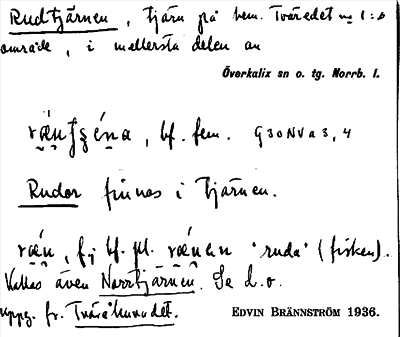 Rudtjärnen, tjärn på hem. Tväredet no 1:s
område, i mellersta delen av
Överkalix sn o. tg. Norrb. l.
bf. fem. G 30 NV a 3, 4
Rudor finnes i tjärnen.
bf. pl. "ruda" (fisken).
Kallas även Norrtjärnen. Se d.o.
Uppg. fr.
EDVIN BRÄNNSTRÖM 1936.